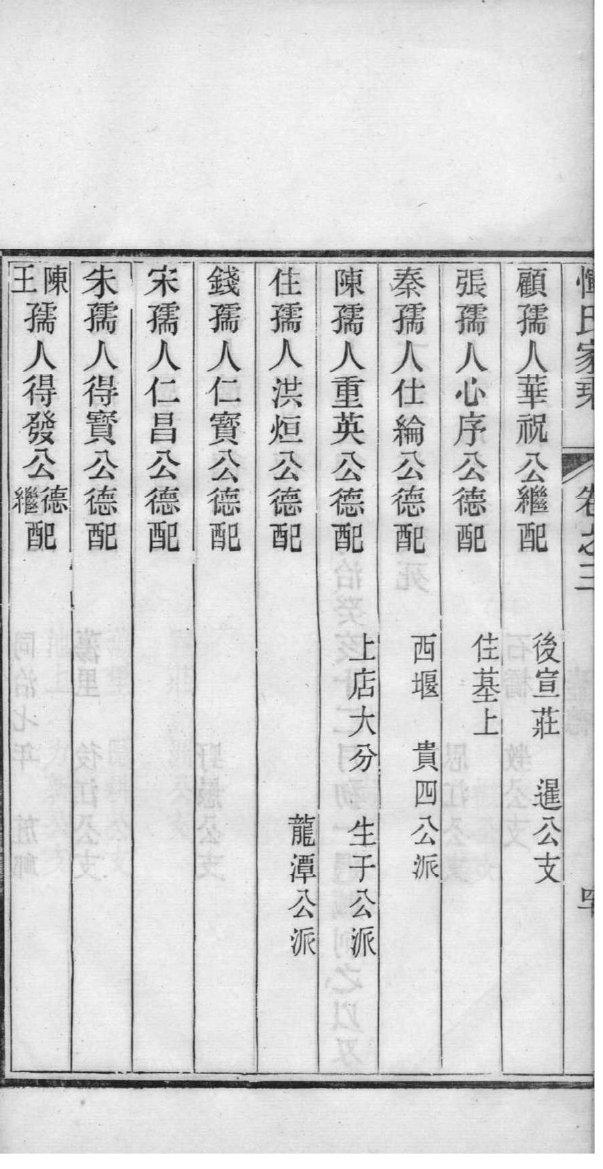 惲氏家乘 卷之三
顧孺人華祝公繼配 後宣莊 暹公支
張孺人心序公德配 住墓上
秦孺人仕綸公德配 西堰 貴四公派
陳孺人重英公德配 上店大分 生于公派
住孺人洪烜公德配 龍潭公派
錢孺人仁寶公德配
宋孺人仁昌公德配
朱孺人得寶公德配
陳王孺人得發公德繼配